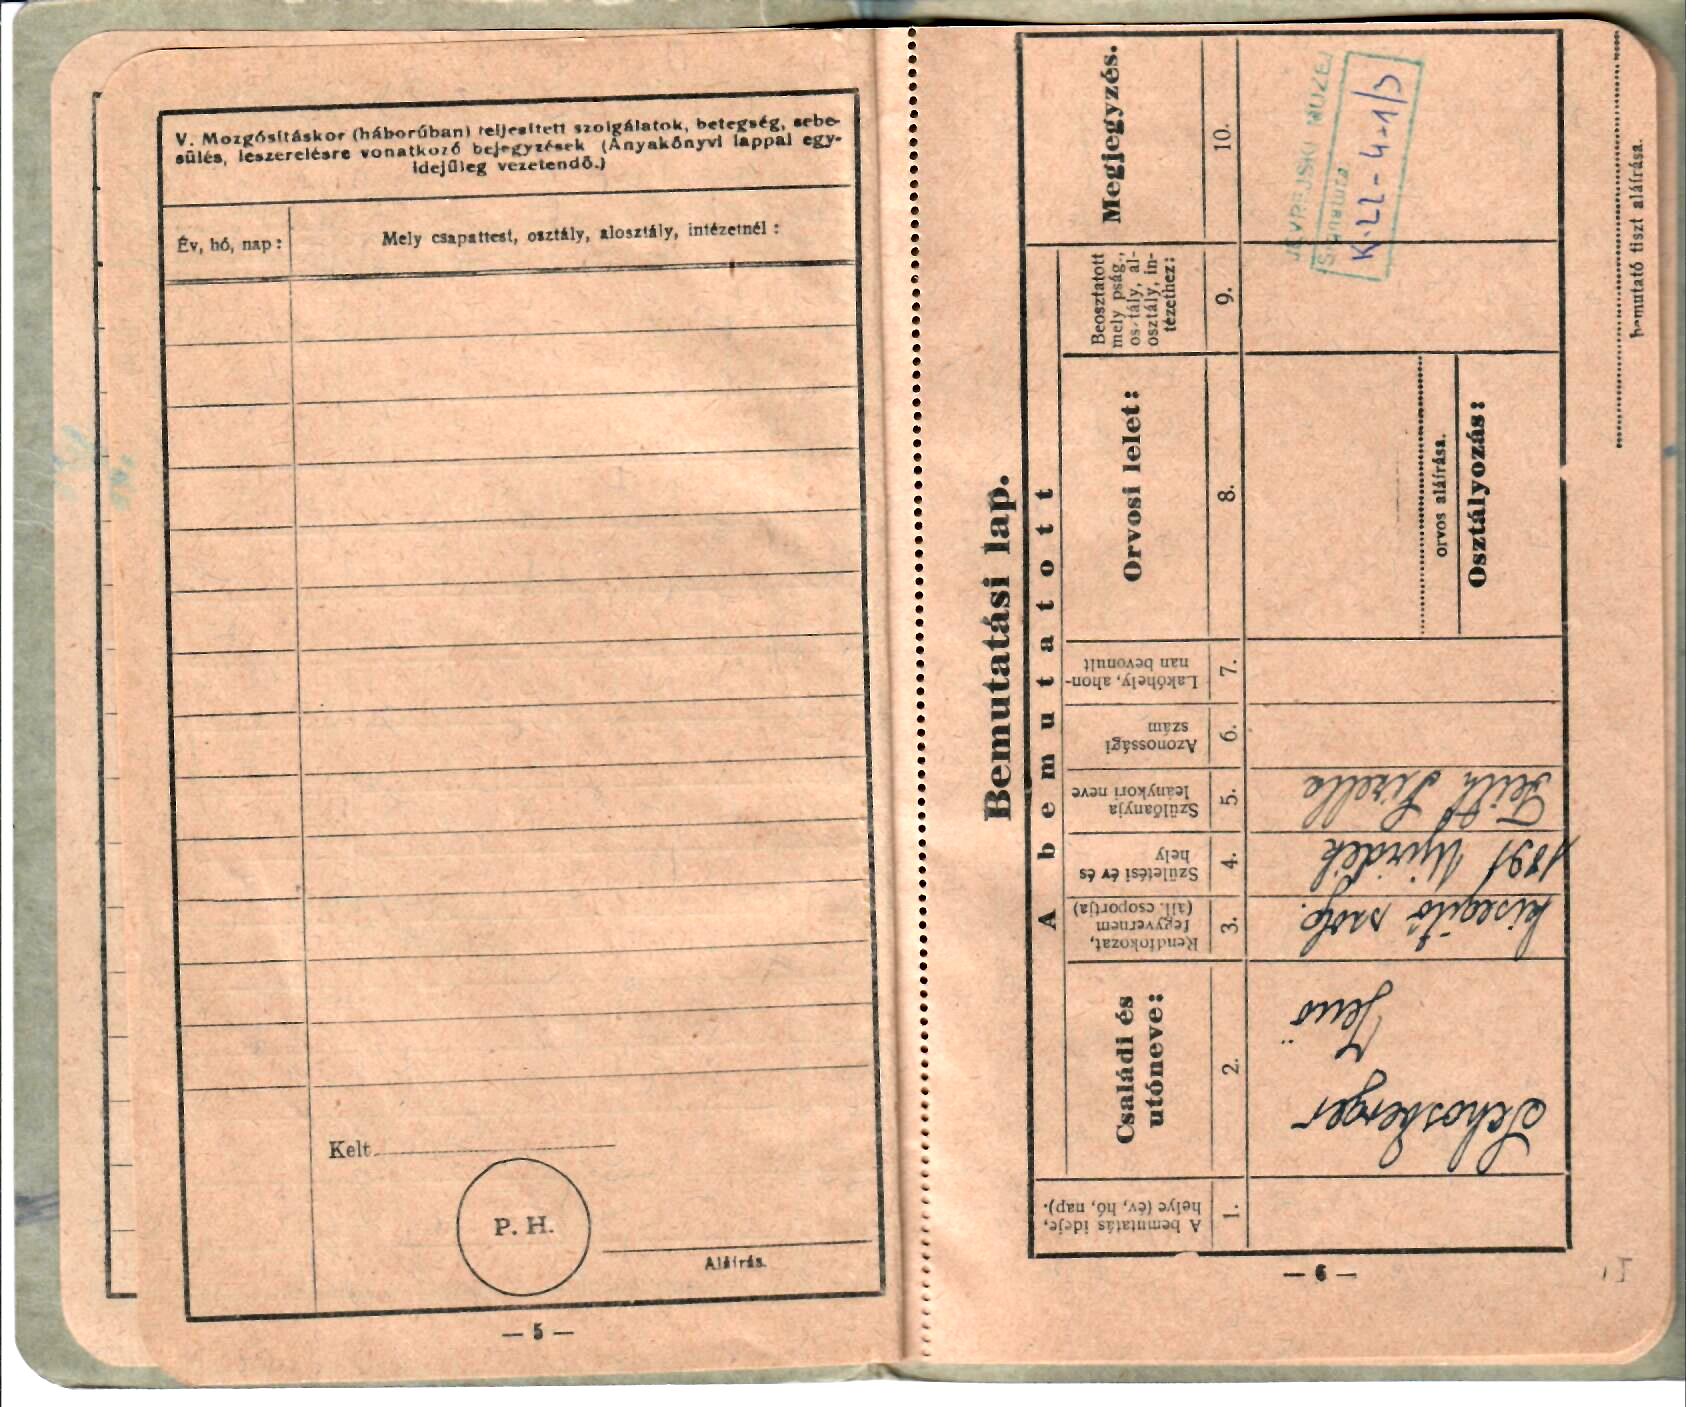 V. Mozgósításkor (háborúban) teljesített szolgálatok, betegség, sebe-
sülés, leszerelésre vonatkozó bejegyzések (Anyakönyvi lappal egy-
idejűleg vezetendő.)
Év, hó, nap:
Mely csapattest, osztály, alosztály, intézetnél:
Kelt
P. H.
Aláírás.
— 5 —
Bemutatási lap.
A bemutatott
A bemutatás ideje,
helye (év, hó, nap).
Családi és
utóneve:
Rendfokozat,
fegyvernem
(áll. csoportja)
Születési év és
hely
Szülőanyja
leánykori neve
Azonossági
szám
Lakóhely, ahon-
nan bevonult
Orvosi lelet:
Beosztatott
mely pság.,
osztály, al-
osztály, in-
tézethez:
Megjegyzés.
1.
2.
3.
4.
5.
6.
7.
8.
9.
10.
Schosberger
Jenő
kisegítő szolg.
1891 Ujvidék
Gizella
orvos aláírása.
Osztályozás:
JEVREJSKI MUZEJ
Signatura
K-22-4-1/3
bemutató tiszt aláírása.
— 6 —